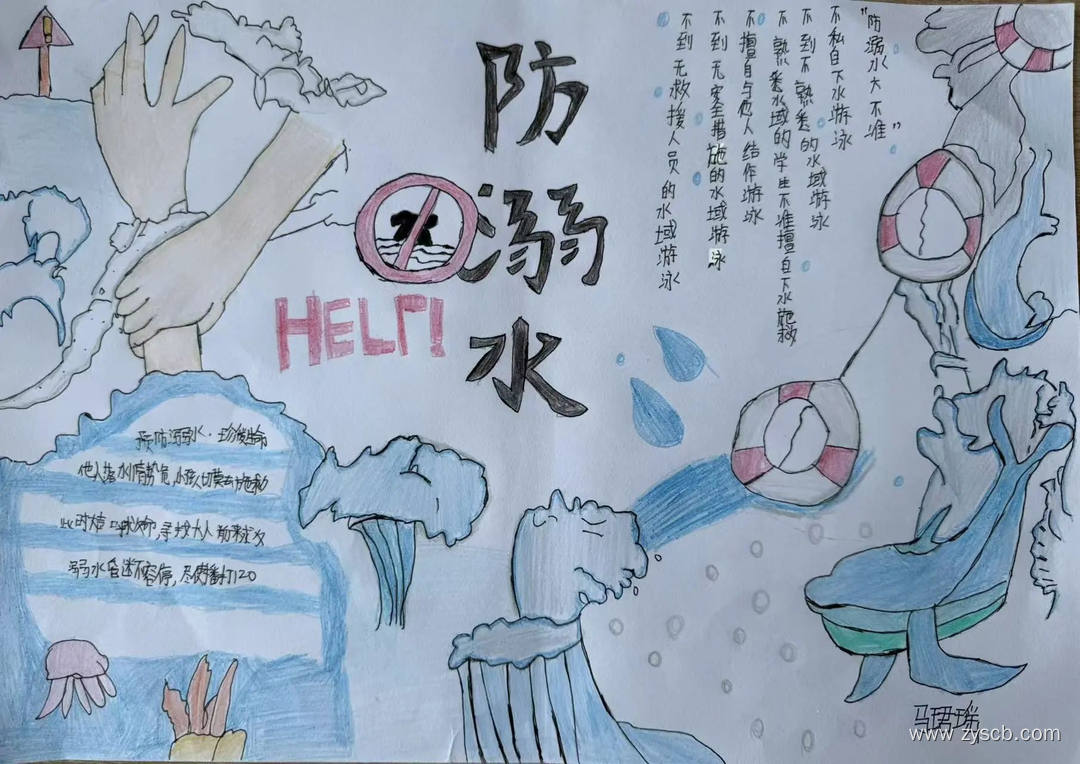 防溺水
HELP!
"防溺水六不准"
不私自下水游泳
不到不熟悉的水域游泳
不熟悉水域的学生不准擅自下水施救
不擅自与他人结作游泳
不到无安全措施的水域游泳
不到无救援人员的水域游泳
预防溺水·珍爱生命
他人落水情势危,小孩切莫去施救
此时大声呼救命,寻找大人前来救
溺水昏迷不容停,尽快打120
马珺瑶
www.zyscb.com